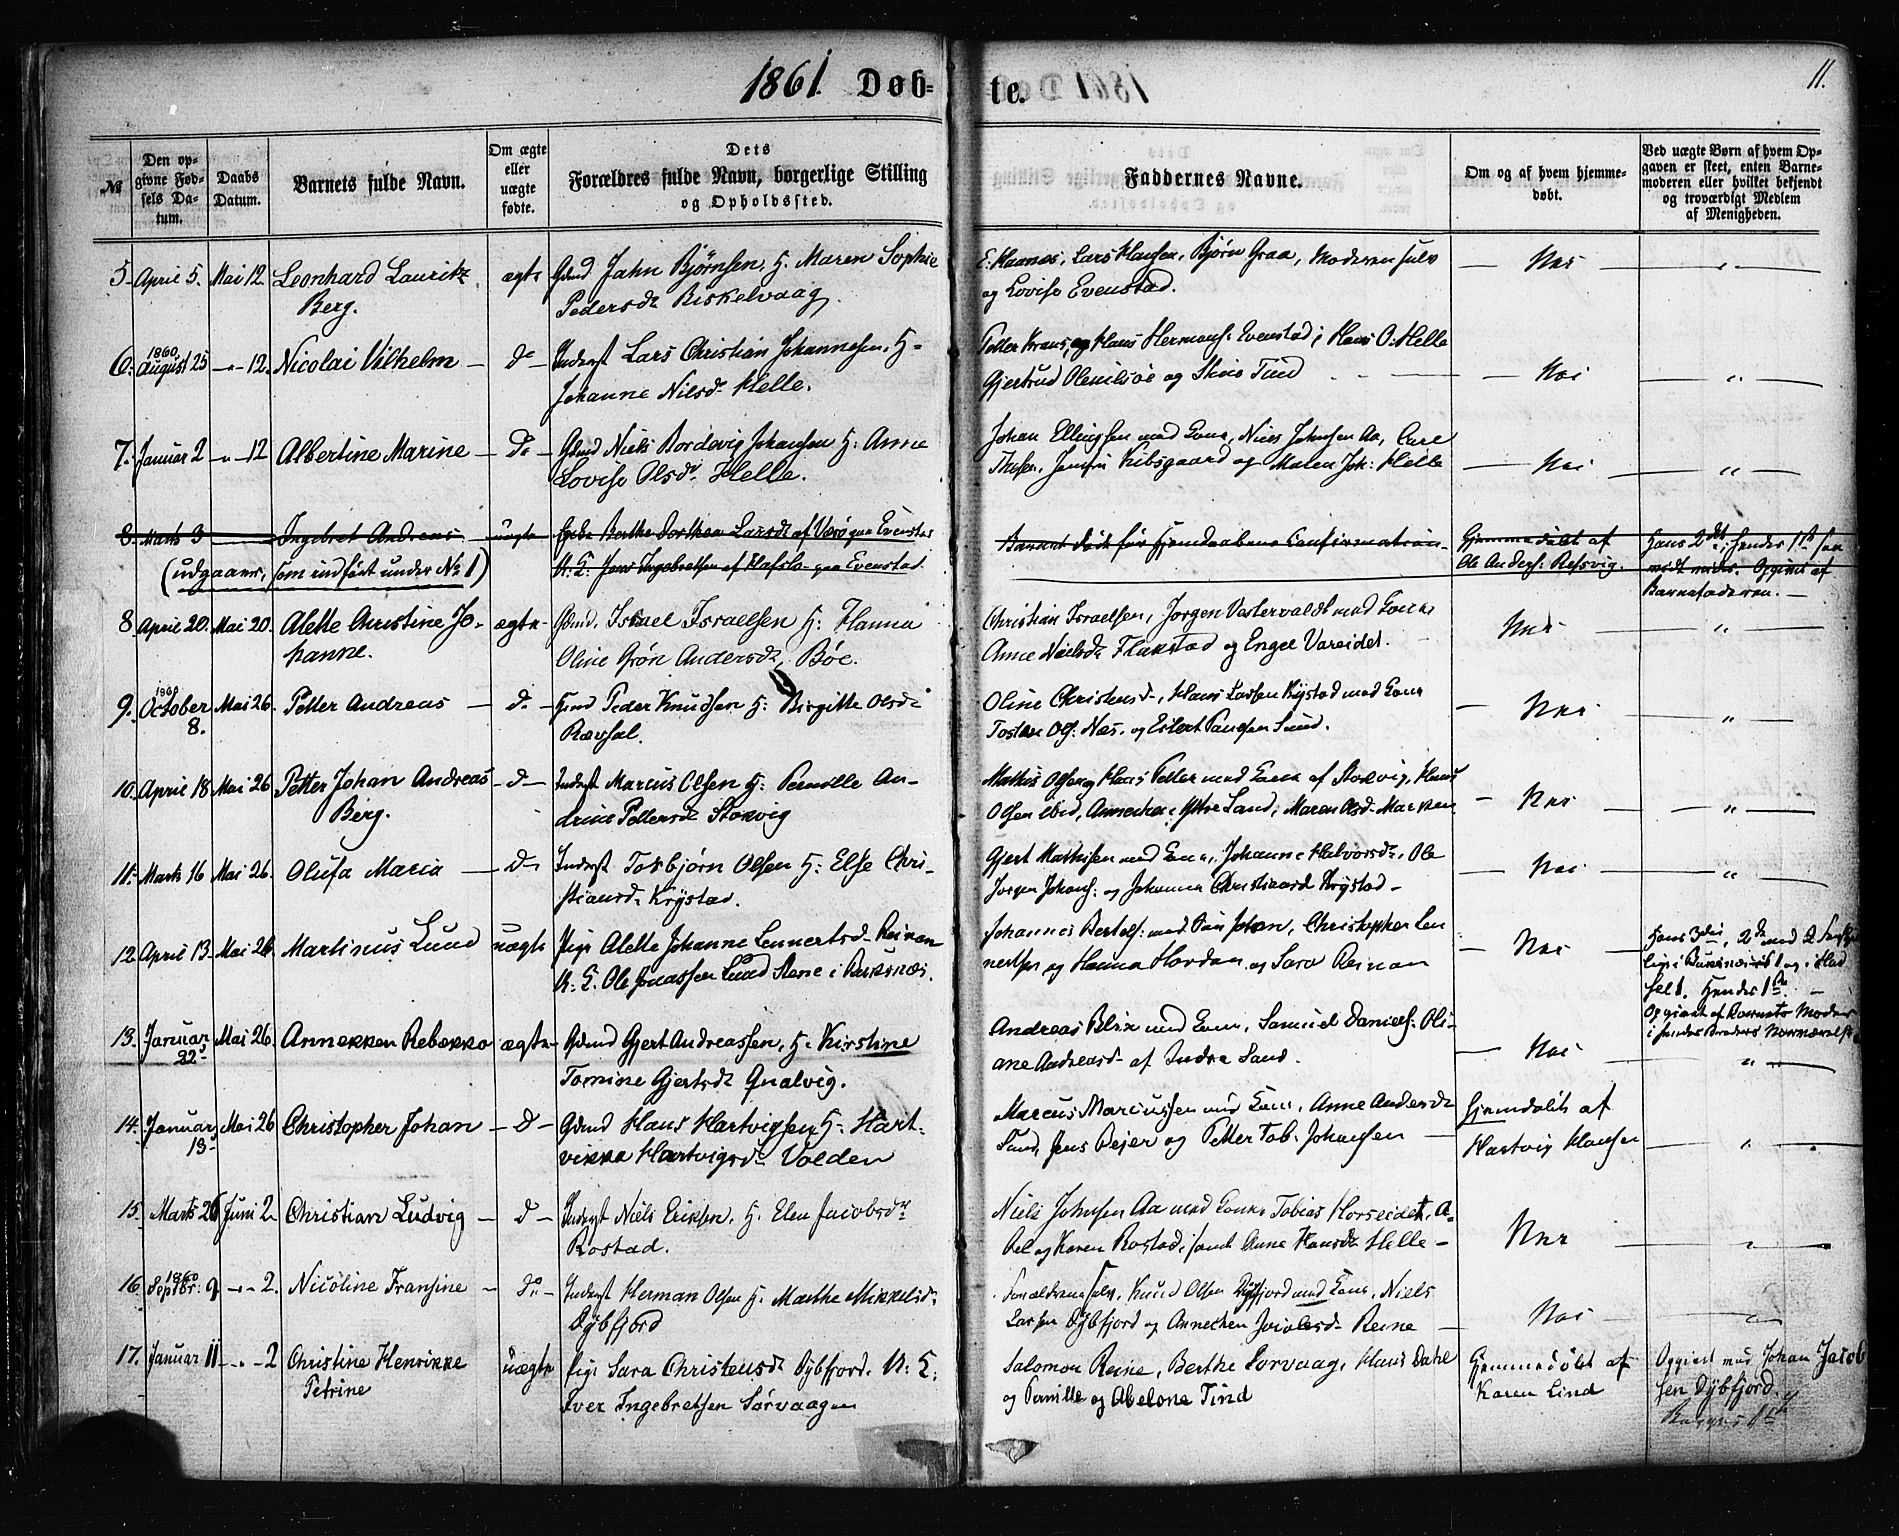 1861. Døb-te.
11.
№
Den opgivne Fødsels Datum.
Daabs Datum.
Barnets fulde Navn.
Om ægte eller uægte fødte.
Dets Forældres fulde Navn, borgerlige Stilling og Opholdssted.
Faddernes Navne.
Om og af hvem hjemmedøbt.
Ved uægte Børn af hvem Opgaven er skeet, enten Barnemoderen eller hvilket bekjendt og troværdigt Medlem af Menigheden.
5. April 5. Mai 12. Leonhard Lauritz ægte Gdmd Jahn Bjørnsen, H. Maren Sophie
Berg. Pedersdr
E. Haanæs, Lars Hansen, Bjørn Graa, Moderen selv — Nei — "
og Lovise Evenstad.
6. 1860 August 25 — " — 12. Nicolai Vilhelm — do Inderst Lars Christian Johannesen, H.
Johanne Nielsdr Helle.
Petter Krans, og Hans Hermans: Evenstad, Hans O: Helle
Gjertrud og Tind — Nei — "
7. Januar 2 — " — 12 Albertine Marine — Do — Gdmd Niels Bordevig Johansen H: Anne
Lovise Olsdr Helle.
Johan Ellingsen med Kone, Niels Johnsen Aa, Carl
Thesen, Kibsgaard og Maren Joh: Helle — Nei — "
8. Marts 3 — Ingebret Andreas — uægte Berthe Dorthea Larsdr af Værø paa Evenstad
(udgaaer, som indført under No 1) U: E. Jens Ingebretsen af Hafslo paa Evenstad.
Barnet døde før Hjemdaabens Confirmation.
Hjemmedøbt af
Ole Anders: Refsvig.
Hans 2det, hendes 1st
Opgivet af
Barnefaderen.
8 April 20. Mai 20. Alette Christine Jo- ægte Gdmd. Israel Israelsen H: Hanna
hanne. Oline Grøn Andersdr Böe.
Christian Israelsen, Jørgen Vestervaldt med Kone
Anne Nielsdr Flakstad og Engel Vareidet. Nei — "
9. 1860 October 8. Mai 26. Petter Andreas — do Gmd Peder Knudsen H: Birgitte Olsdr
Ræsal.
Oline Christensd., Hans Larsen Krystad med Kone
Tosten Ols: Næs. og Eilert Poulsen Sund. — Nei — "
10. April 18 Mai 26. Petter Johan Andreas — d — Inderst Marcus Olsen H: Pernille An-
Berg. drine Pettersdr Stokvig
Mathis Olsen og Hans Petter med Kone af Stokvig, Hans
Olsen ibid, Annechen Ytre Sand, Maren Olsd. Marken — Nei — "
11. Marts 16 Mai 26. Olufa Maria — do Inderst Torbjørn Olsen H: Else Chri-
stiansdr Krystad.
Gjert Mathisen med Kone, Johanne Halvorsdr, Ole
Jørgen Johans: og Johanna Christiansd Krystad — Nei — "
12. April 13. Mai 26. Martinus Lund uægte Pige Alette Johanne Lennertsd. Reinen
U: E. Ole Jonassen Lund i Buksnæs.
Johannes Bertels: med Søn Johan, Christopher Len
nertsen og Hanna Hordan og Sara Reinen — Nei —
Hans 3die, 2de med 2
i Buksnæs 1 og i Had
sel 1. Hendes 1ste
Opgivet af Barnets Moder
i hendes Broders Nærværelse
13. Januar 22. Mai 26. Annekken Rebekka ægte Gdmd Gjert Andreassen, H. Kirstine
Tomine Gjertsdr Qvalvig.
Andreas Blix med Kone, Samuel Daniels: Oli-
ane Andreasd. af Indre Sand. — Nei — "
14. Januar 13. Mai 26 Christopher Johan — D — Gdmd Hans Hartvigsen H. Hart-
vikka Hartvigsdr Volden
Marcus Marcussen med Kone, Anne Andersdr
Sund, Jens Peier og Petter Tob: Johansen
Hjemdøbt af
Hartvig Hansen — "
15. Marts 26 Juni 2. Christian Ludvig — D — Inderst Niels Eriksen. H. Elen Jacobsdr
Rostad.
Niels Johnsen Aa med Kone Tobias Horseidet, A-
bel og Karen Rostad, samt Anne Hansdr Helle — Nei — "
16 1860 Septbr: 9 — " — 2. Nicoline Fransine — Do — Inderst Herman Olsen H. Marthe Mikkelsd:
Dybfjord
Forældrene selv, Knud Olsen Dybfjord med Kone, Niels
Larsen Dybfjord og Annechen Jacobsd. Reine — Nei — "
17. Januar 11 — " — 2 Christine Henrikke uægte Pige Sara Christensdr Dybfjord. U: E:
Petrine Iver Ingebretsen Sørvaagen
Salomon Reine, Berthe Sørvaag, Hans Dahl
og Pernille og Abelone Tind
Hjemmedøbt af
Karen Lind
Opgivet med Johan Jacob
sen Dybfjord.
Begges 1ste